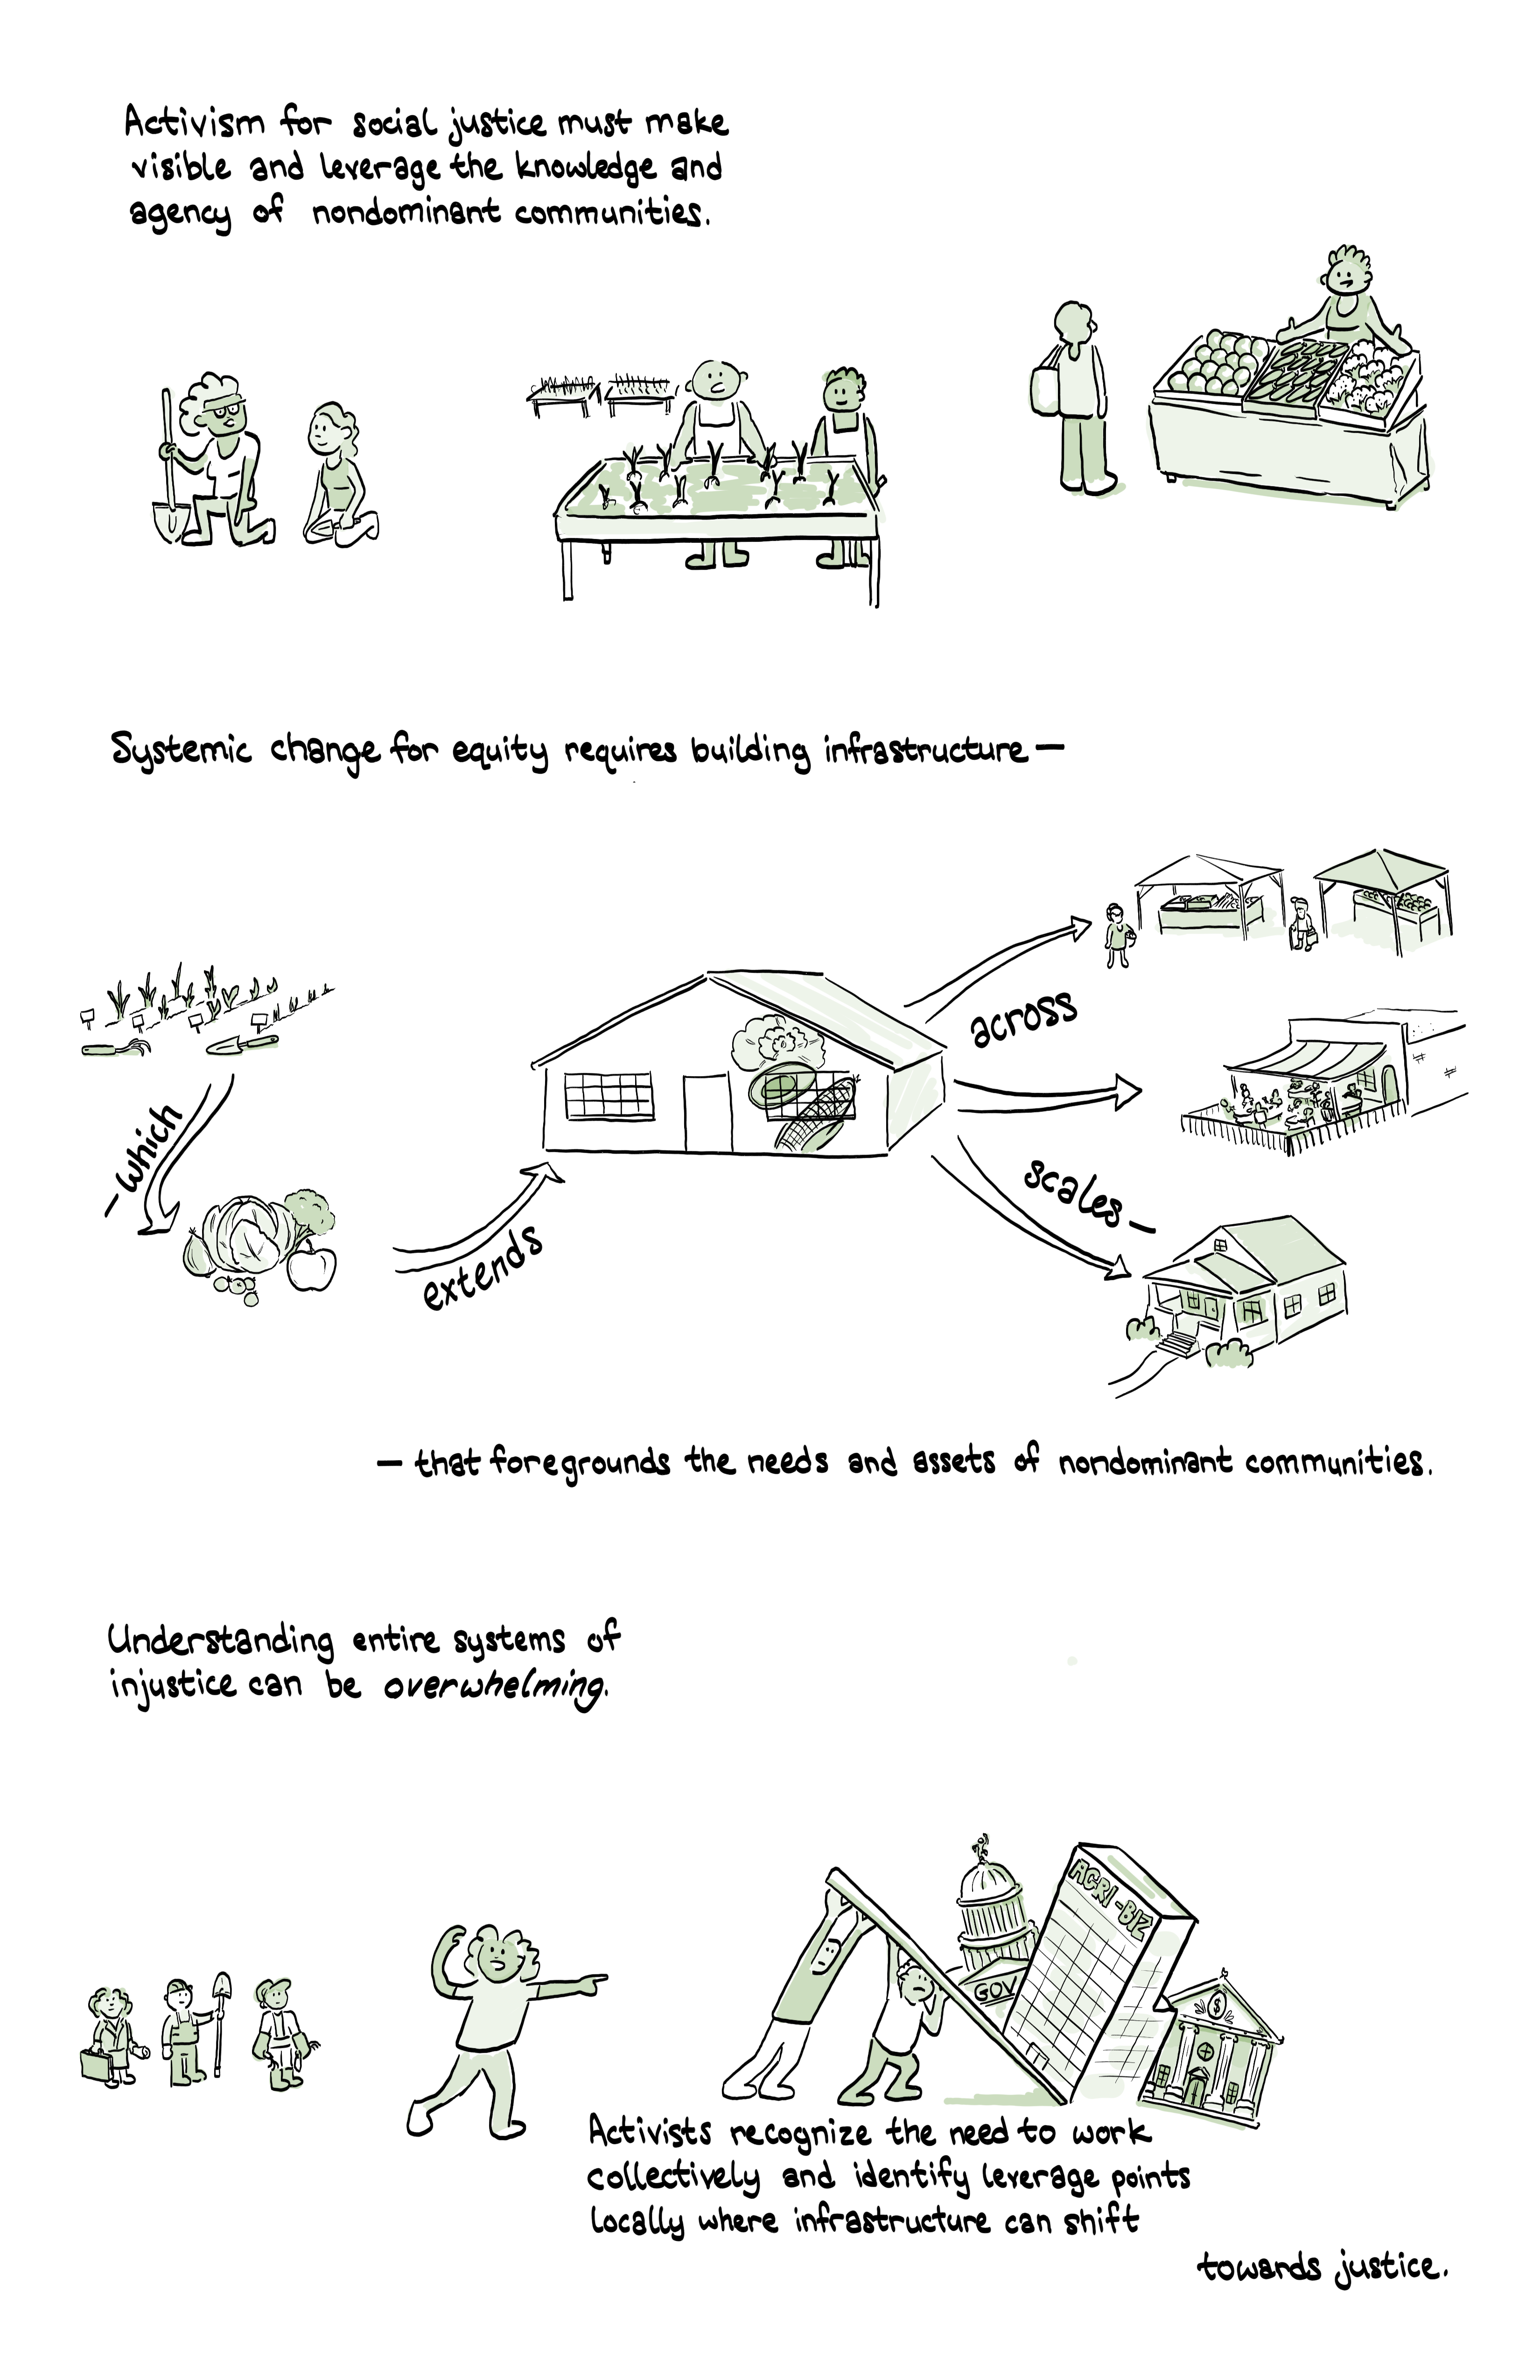 Activism for social justice must make
visible and leverage the knowledge and
agency of nondominant communities.
Systemic change for equity requires building infrastructure —
— which
extends
across
scales —
— that foregrounds the needs and assets of nondominant communities.
Understanding entire systems of
injustice can be overwhelming.
AGRI-BIZ
GOV
$
Activists recognize the need to work
collectively and identify leverage points
locally where infrastructure can shift
towards justice.